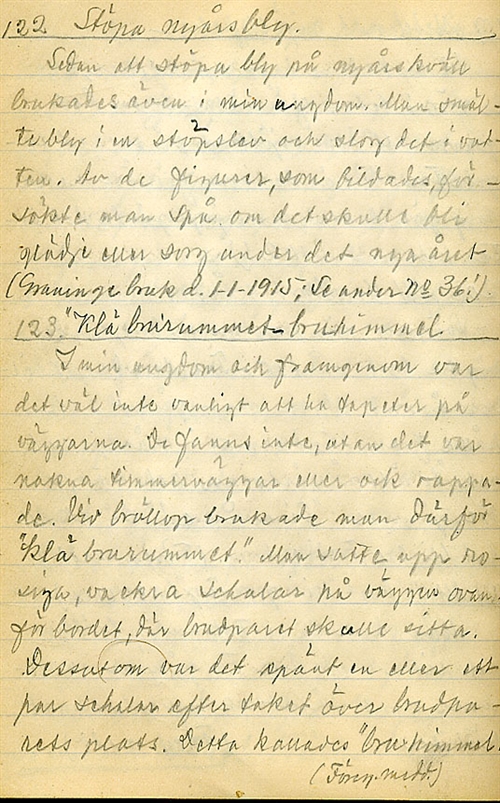 122 Stöpa nyårsbly.
Sedan att stöpa bly på nyårskväll
brukades även i min ungdom. Man smäl-
te bly i en stöpslev och slog det i vat-
ten. Av de figurer, som bildades, för-
sökte man spå om det skulle bli
glädje eller sorg under det nya året
(Graninge bruk d. 1-1-1915; Se under No 36!)
123. "Klä brurummet - bruhimmel.
I min ungdom och framgenom var
det väl inte vanligt att ha tapeter på
väggarna. De fanns inte, utan det var
nakna timmerväggar eller ock rappa-
de. Vid bröllop brukade man därför
"klä brurummet." Man satte upp ro-
siga, vackra schalar på väggen ovan-
för bordet, där brudparet skulle sitta.
Dessutom var det spänt en eller ett
par schalar efter taket över brudpa-
rets plats. Detta kallades "bruhimmel.
(Föreg. medd.)